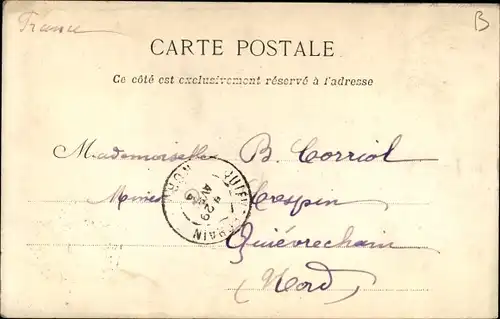 France
B
CARTE POSTALE
Ce côté est exclusivement réservé à l'adresse
Mademoiselle B. Corriol
Mines Crespin
Quiévrechain
(Nord)
QUIÉVRECHAIN
NORD
4 29
AVR